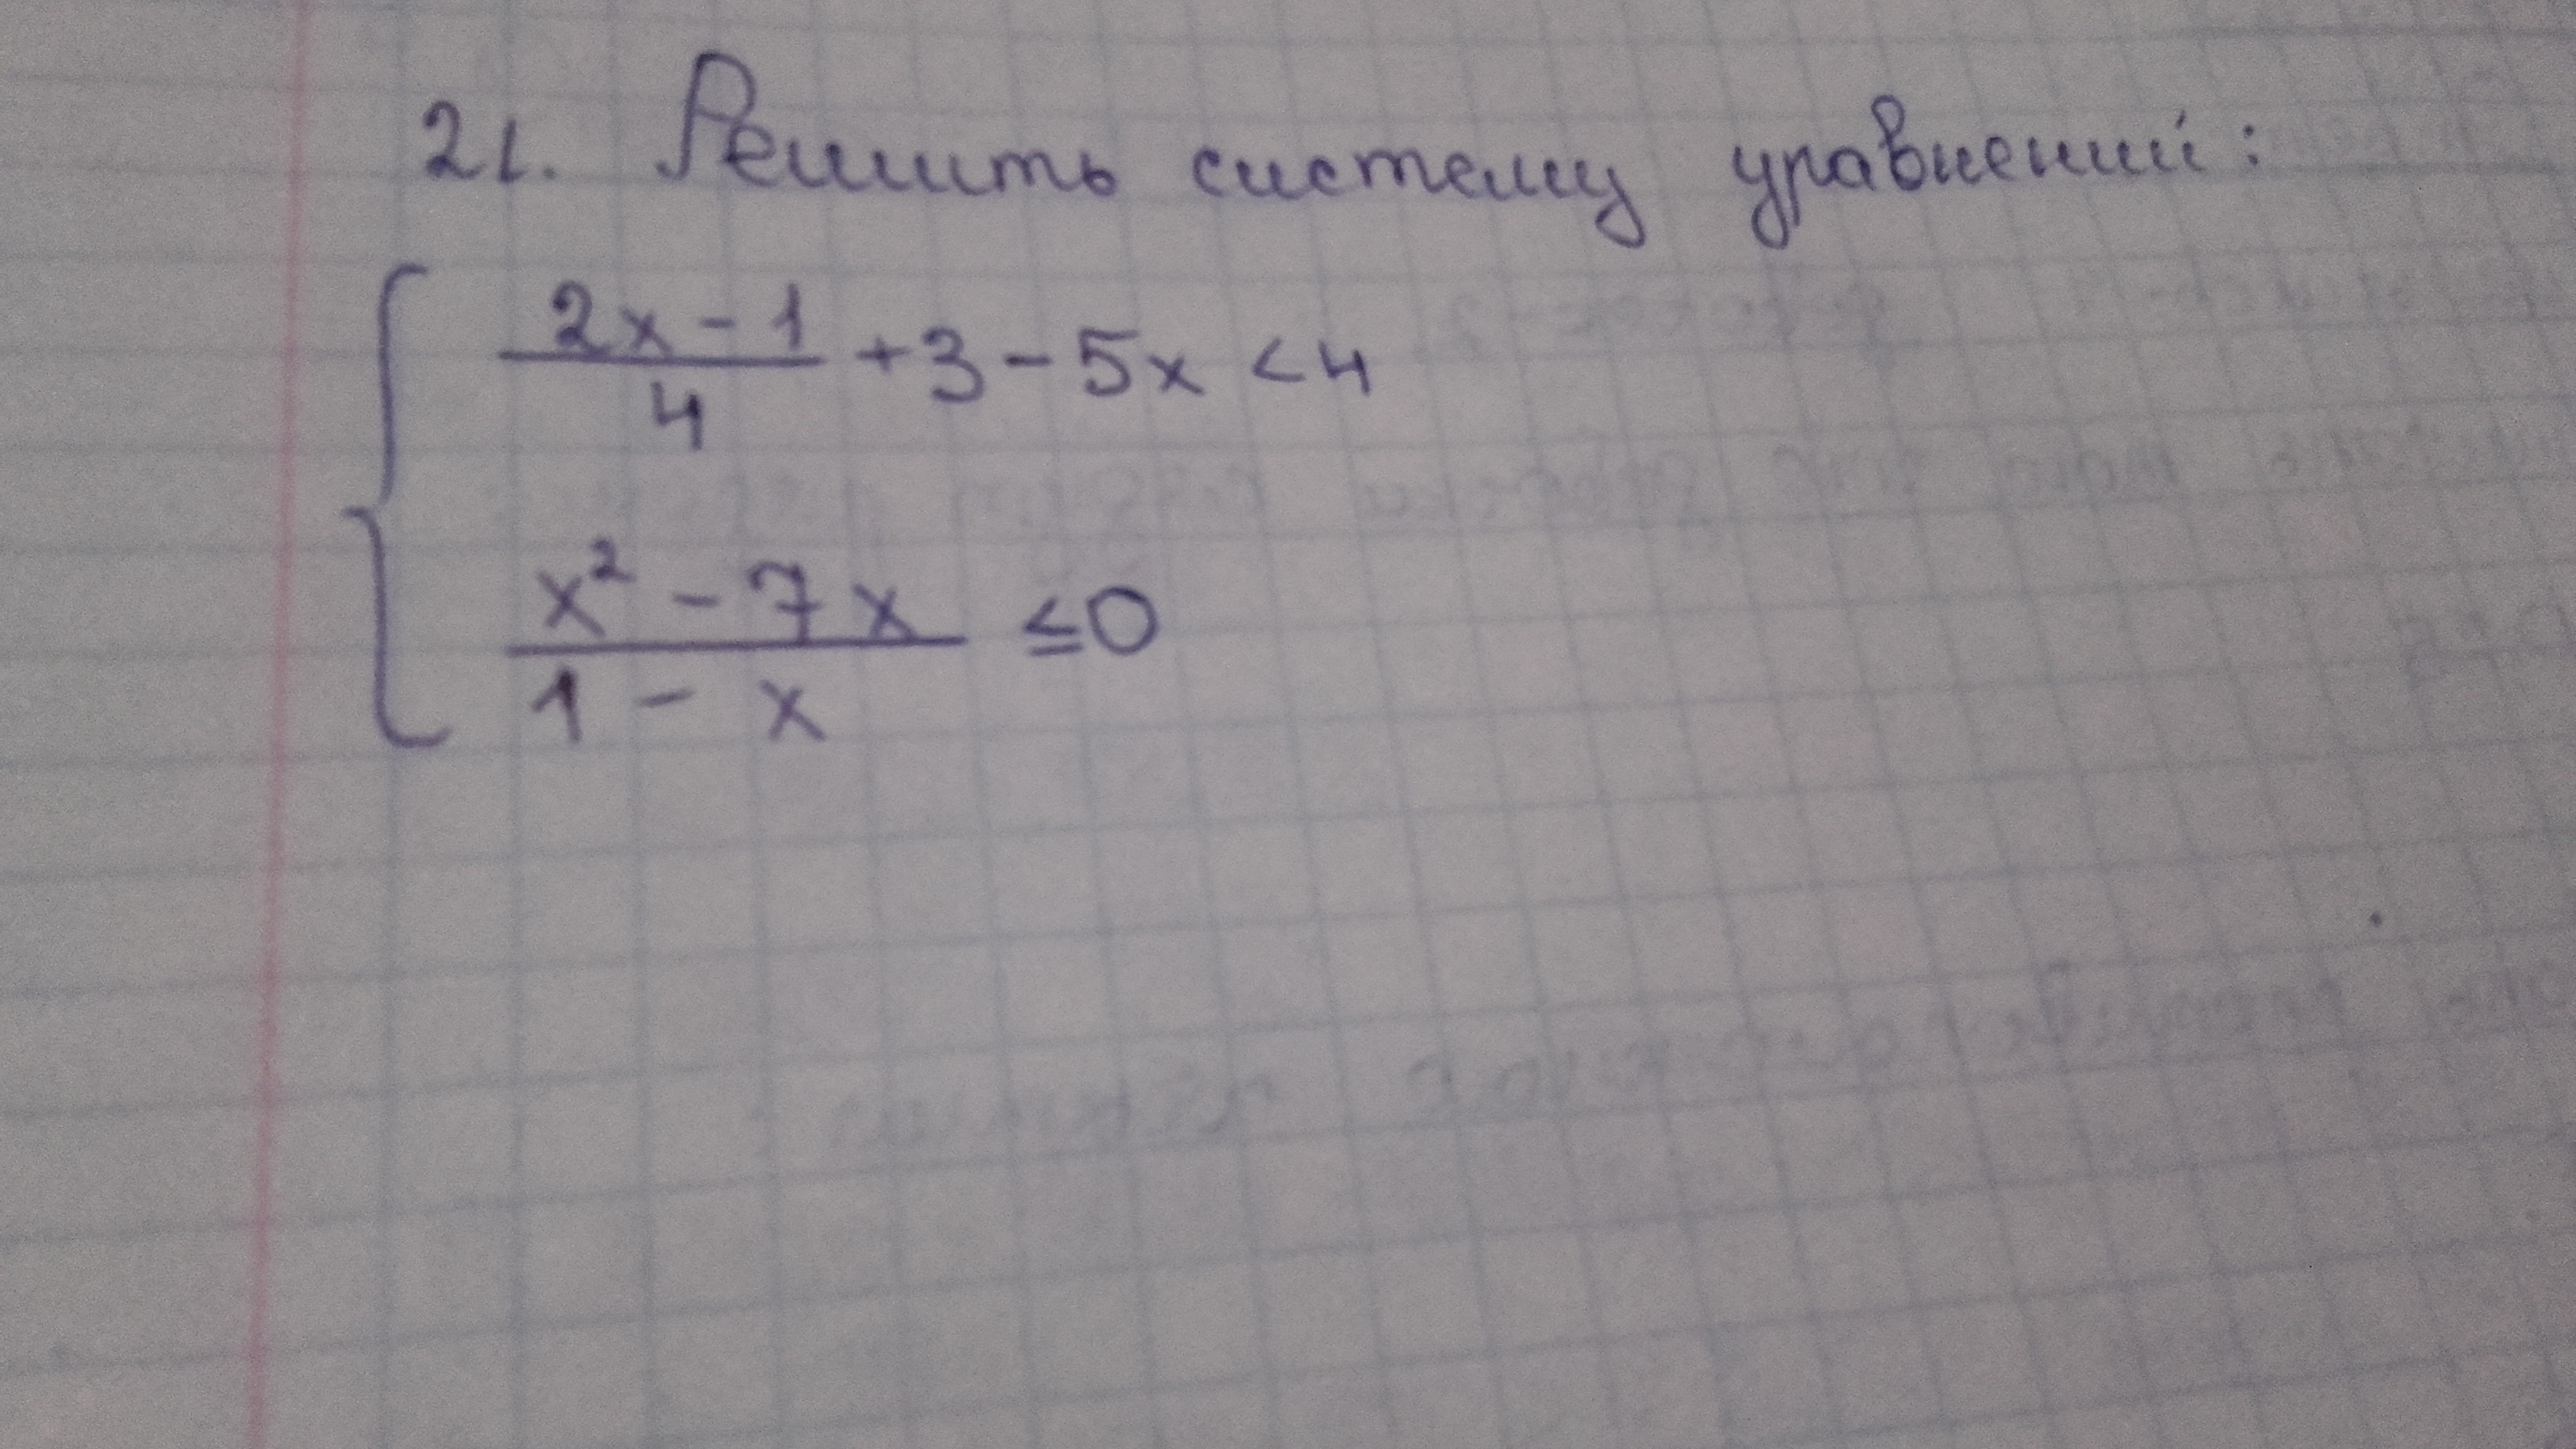 21. Решить систему уравнений:
2x - 1
4
+3 - 5x < 4
x² - 7x
1 - x
≤0